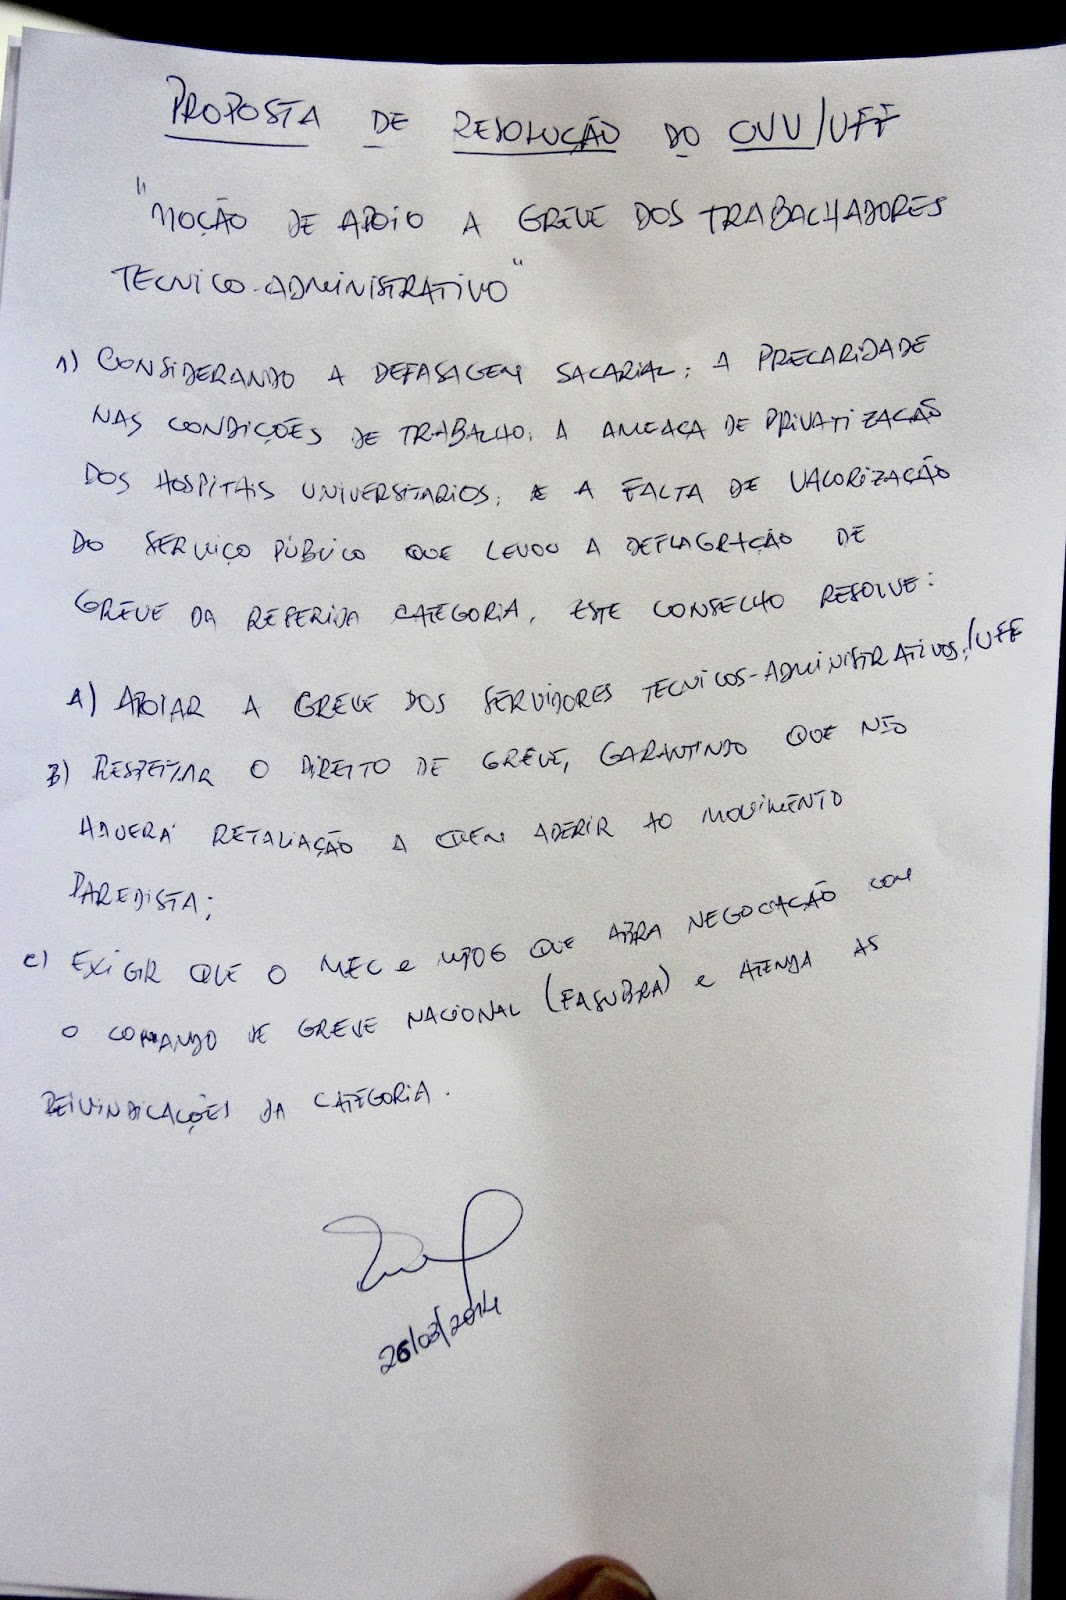 PROPOSTA DE RESOLUÇÃO DO CUV/UFF
"MOÇÃO DE APOIO A GREVE DOS TRABALHADORES
TECNICO-ADMINISTRATIVO"
1) CONSIDERANDO A DEFASAGEM SALARIAL; A PRECARIDADE
NAS CONDIÇÕES DE TRABALHO; A AMEAÇA DE PRIVATIZAÇÃO
DOS HOSPITAIS UNIVERSITARIOS; E A FALTA DE VALORIZAÇÃO
DO SERVIÇO PÚBLICO QUE LEVOU A DEFLAGRAÇÃO DE
GREVE DA REFERIDA CATEGORIA, ESTE CONSELHO RESOLVE:
A) APOIAR A GREVE DOS SERVIDORES TECNICOS-ADMINISTRATIVOS/UFF
B) RESPEITAR O DIREITO DE GREVE, GARANTINDO QUE NÃO
HAVERÁ RETALIAÇÃO A QUEM ADERIR AO MOVIMENTO
PAREDISTA;
C) EXIGIR QUE O MEC e MPOG QUE ABRA NEGOCIAÇÃO COM
O COMANDO DE GREVE NACIONAL (FASUBRA) e ATENDA AS
REIVINDICAÇÕES DA CATEGORIA.
26/03/2014